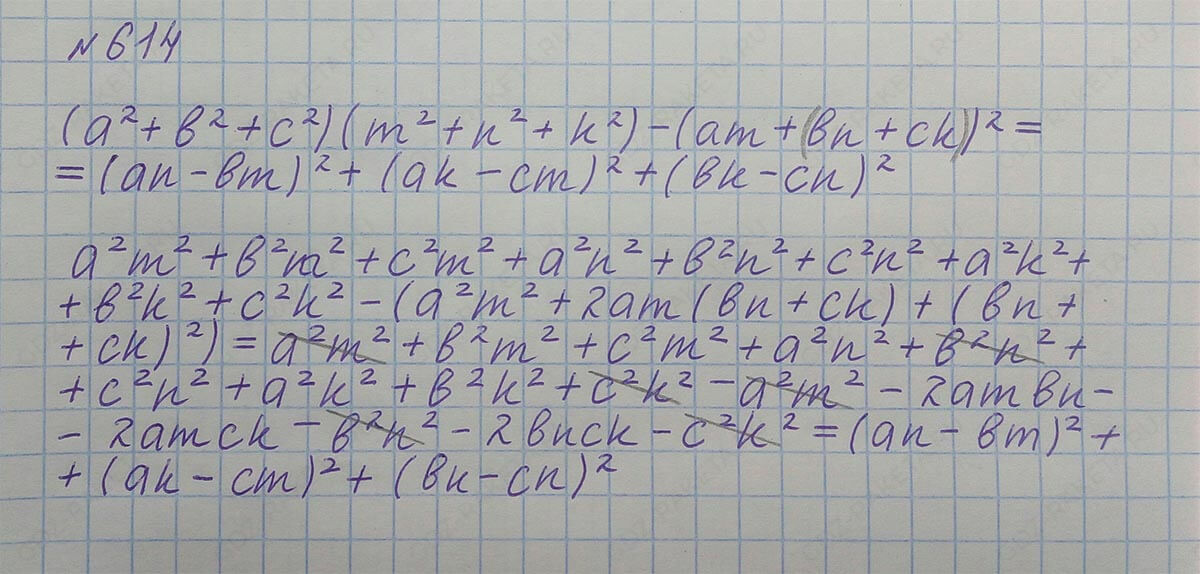 № 614
(a² + в² + c²)(m² + n² + k²) – (am + (вn + ck))² =
= (an – вm)² + (ak – cm)² + (вk – cn)²
a²m² + в²m² + c²m² + a²n² + в²n² + c²n² + a²k² +
+ в²k² + c²k² – (a²m² + 2am(вn + ck) + (вn +
+ ck)²) = a²m² + в²m² + c²m² + a²n² + в²n² +
+ c²n² + a²k² + в²k² + c²k² – a²m² – 2amвn –
– 2amck – в²n² – 2вnck – c²k² = (an – вm)² +
+ (ak – cm)² + (вk – cn)²